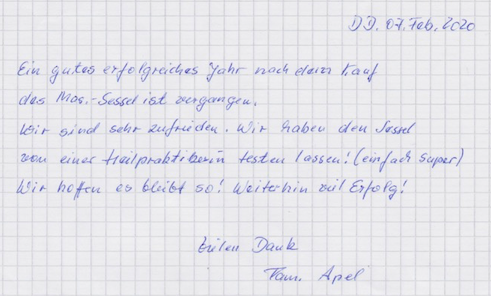 DD. 07. Feb. 2020
Ein gutes erfolgreiches Jahr nach dem Kauf
des Mas.-Sessel ist vergangen.
Wir sind sehr zufrieden. Wir haben den Sessel
von einer Heilpraktikerin testen lassen! (einfach super)
Wir hoffen es bleibt so! Weiterhin viel Erfolg!
Vielen Dank
Fam. Apel